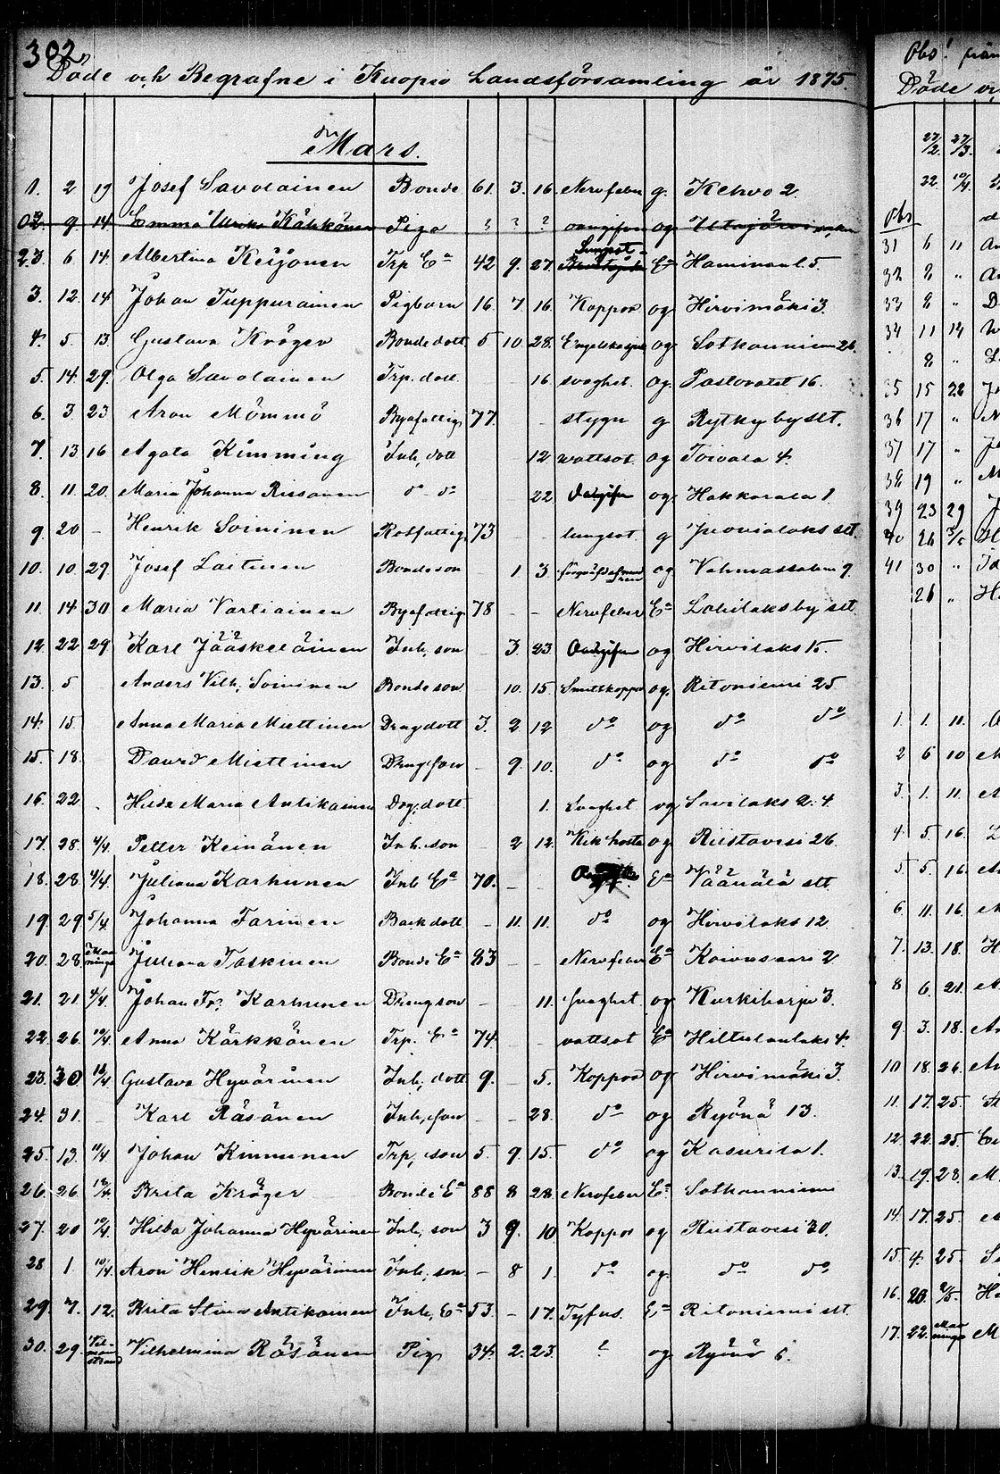 302.
Döde och Begrafne i Kuopio Landsförsamling år 1875.
Mars.
1. 2 19 Josef Savolainen Bonde 61. 3. 16. Nervfeber g. Kehvo 2
02. 9 14 Emma Ulrika Kähkönen Piga ? ? ? og
23. 6 14 Albertina Keijonen Trp Ea 42 9. 27. Ea Haminanl 5.
3. 12. 14 Johan Tuppurainen Pigbarn 16 7 16 Koppor og Hirvimäki 3.
4. 5. 13. Gustava Kröger Bonde dott 5 10 28. og Sotkanniemi 26.
5. 14 29. Olga Savolainen Trp. dott. 16 svaghet. og 16.
6. 3 23 Aron Mömmö Byafattig 77. stygn g Rytky by slt.
7. 13 16 Agata Kimming Inh, dott 12 vattsot. og Toivala 4.
8. 11. 20. Maria Johanna Rissanen do do 22. og Hakkarala 1
9. 20 – Henrik Soininen Rotfattig 73 lungsot. g slt.
10. 10. 29. Josef Laitinen Bondeson - 1 3 og Vehmassalmi 9.
11. 14 30 Maria Vartiainen Byafattig 78 - - Nervfeber Ea by slt
12 22 29. Karl Jääskeläinen Inh, son 3. 23 og Hirvilaks 15.
13. 5 Anders Vilh, Soininen Bondeson 10. 15. Smittkoppor og. Ritoniemi 25
14. 15. Anna Maria Miettinen Drengdott 3. 2 12 do og do do
15. 18. David Miettinen Dreng, son - 9. 10. do og do do
16. 22 Hilda Maria Antikainen Drg. dott 1. svaghet og Savilaks 2. 4
17. 28. 4/4. Petter Keinänen Inh. son 2 12. Kikhosta og Riistavesi 26.
18. 28 4/4. Juliana Karhunen Inh Ea 70. - Ea Väänälä slt
19 29 5/4. Johanna Tarinen Backdott - 11. 11. do og Hirvilaks 12.
20. 28. Maaninga Juliana Taskinen Bonde Ea 83 - - Nervfeber Ea Koivusaari 2
21. 21 4/4. Johan Fr. Karhunen Drengson - 11. svaghet. og Kurkiharju 3.
22. 26. 10/4. Anna Kärkkäinen Trp. Ea 74. vattsot Ea Hiltulanlaks 4.
23. 30 10/4 Gustava Hyvärinen Inh, dott 9. - 5. Koppor og Hirvimäki 3.
24. 31. Karl Räsänen Inh, son - - 28. do og Ryönä 13.
25. 13. 11/4. Johan Kinnunen Trp, son 5 9. 15. do og Kasurila 1.
26. 26. 18/4. Brita Kröger Bonde Ea 88 8 28. Nervfeber Ea Sotkanniemi
27. 20 10/4. Hilda Johanna Hyvärinen Inh, son 3 9. 10 Koppor og Riistavesi 30.
28 1. 10/4. Aron Henrik Hyvärinen Inh, son - 8 1. do og. do do
29. 7. 12. Brita Stina Antikainen Inh, Ea 53. - 17. Tyfus. Ea Ritoniemi slt
30. 29. Vilhelmina Räsänen Pig 34. 2. 23. ? og Ryönä 6.
Obs! från
Döde
27/2. 27/3.
22. 10/4.
Obs
31 6 11
32 2 "
33 8 "
34 11 14
8 "
35 15 22
36 17 "
37 17 "
38 19 "
39 23 29
40 26
41 30 "
26 "
1. 1. 11.
2 6 10
3. 1. 11.
4 5 16.
5. 5. 16.
6. 11. 16.
7. 13. 18.
8 6. 21.
9. 3. 18.
10 18. 26.
11. 17. 25.
12. 22. 25.
13. 19. 28.
14. 17. 25.
15. 4. 25.
16. 20.
17. 22. Maaninga